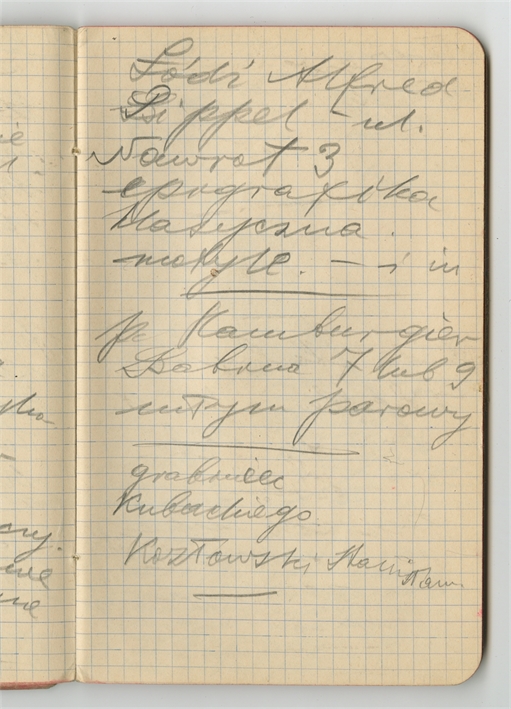 Łódź Alfred
Lippel – ul.
Nawrot 3
epigrafika
klasyczna.
motyle. – i in
p. Hamburgier
7 lub 9
młyn parowy
grabiec
Kubackiego
Kozłowski Stanisław